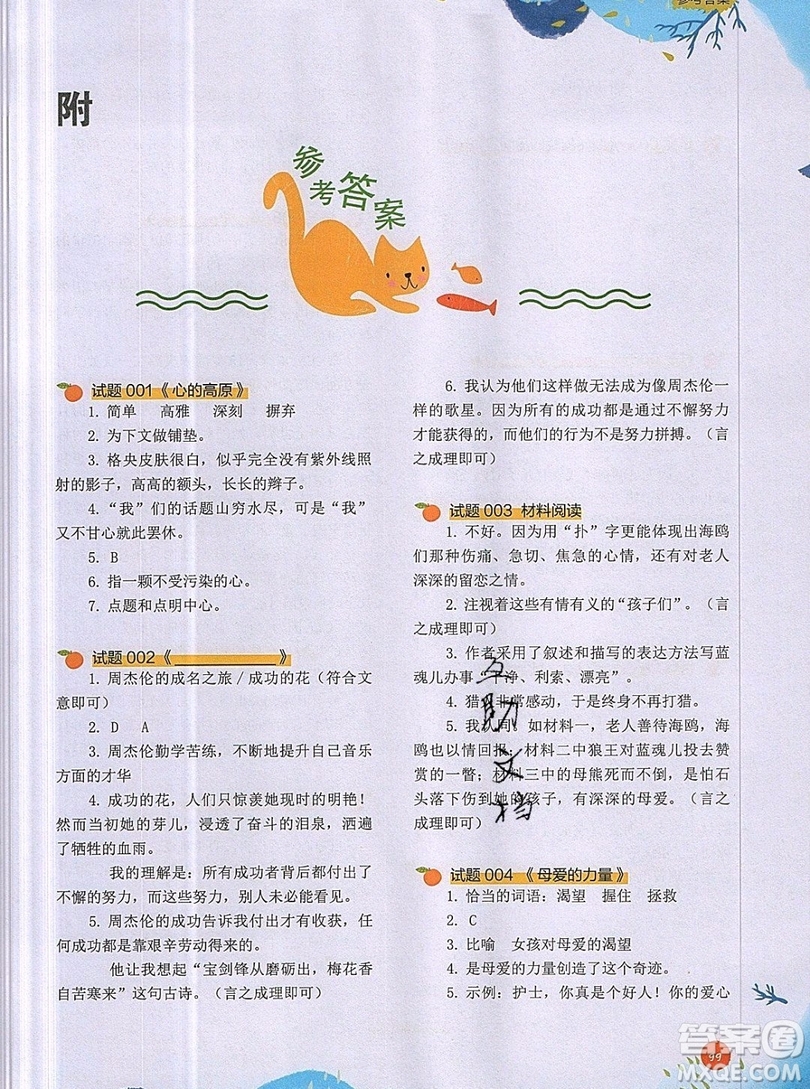 参考答案
附
参考答案
试题 001《心的高原》
1. 简单 高雅 深刻 摒弃
2. 为下文做铺垫。
3. 格央皮肤很白，似乎完全没有紫外线照
射的影子，高高的额头，长长的辫子。
4. “我”们的话题山穷水尽，可是“我”
又不甘心就此罢休。
5. B
6. 指一颗不受污染的心。
7. 点题和点明中心。
试题 002《____________》
1. 周杰伦的成名之旅 / 成功的花（符合文
意即可）
2. D A
3. 周杰伦勤学苦练，不断地提升自己音乐
方面的才华
4. 成功的花，人们只惊羡她现时的明艳！
然而当初她的芽儿，浸透了奋斗的泪泉，洒遍
了牺牲的血雨。
我的理解是：所有成功者背后都付出了
不懈的努力，而这些努力，别人未必能看见。
5. 周杰伦的成功告诉我付出才有收获，任
何成功都是靠艰辛劳动得来的。
他让我想起“宝剑锋从磨砺出，梅花香
自苦寒来”这句古诗。（言之成理即可）
6. 我认为他们这样做无法成为像周杰伦一
样的歌星。因为所有的成功都是通过不懈努力
才能获得的，而他们的行为不是努力拼搏。（言
之成理即可）
试题 003 材料阅读
1. 不好。因为用“扑”字更能体现出海鸥
们那种伤痛、急切、焦急的心情，还有对老人
深深的留恋之情。
2. 注视着这些有情有义的“孩子们”。（言
之成理即可）
3. 作者采用了叙述和描写的表达方法写蓝
魂儿办事“干净、利索、漂亮”。
4. 猎人非常感动，于是终身不再打猎。
5. 我认同，如材料一，老人善待海鸥，海
鸥也以情回报；材料二中狼王对蓝魂儿投去赞
赏的一瞥；材料三中的母熊死而不倒，是怕石
头落下伤到她的孩子，有深深的母爱。（言之
成理即可）
互助文档
试题 004《母爱的力量》
1. 恰当的词语：渴望 握住 拯救
2. C
3. 比喻 女孩对母爱的渴望
4. 是母爱的力量创造了这个奇迹。
5. 示例：护士，你真是个好人！你的爱心
99
答案圈
MXQE.COM